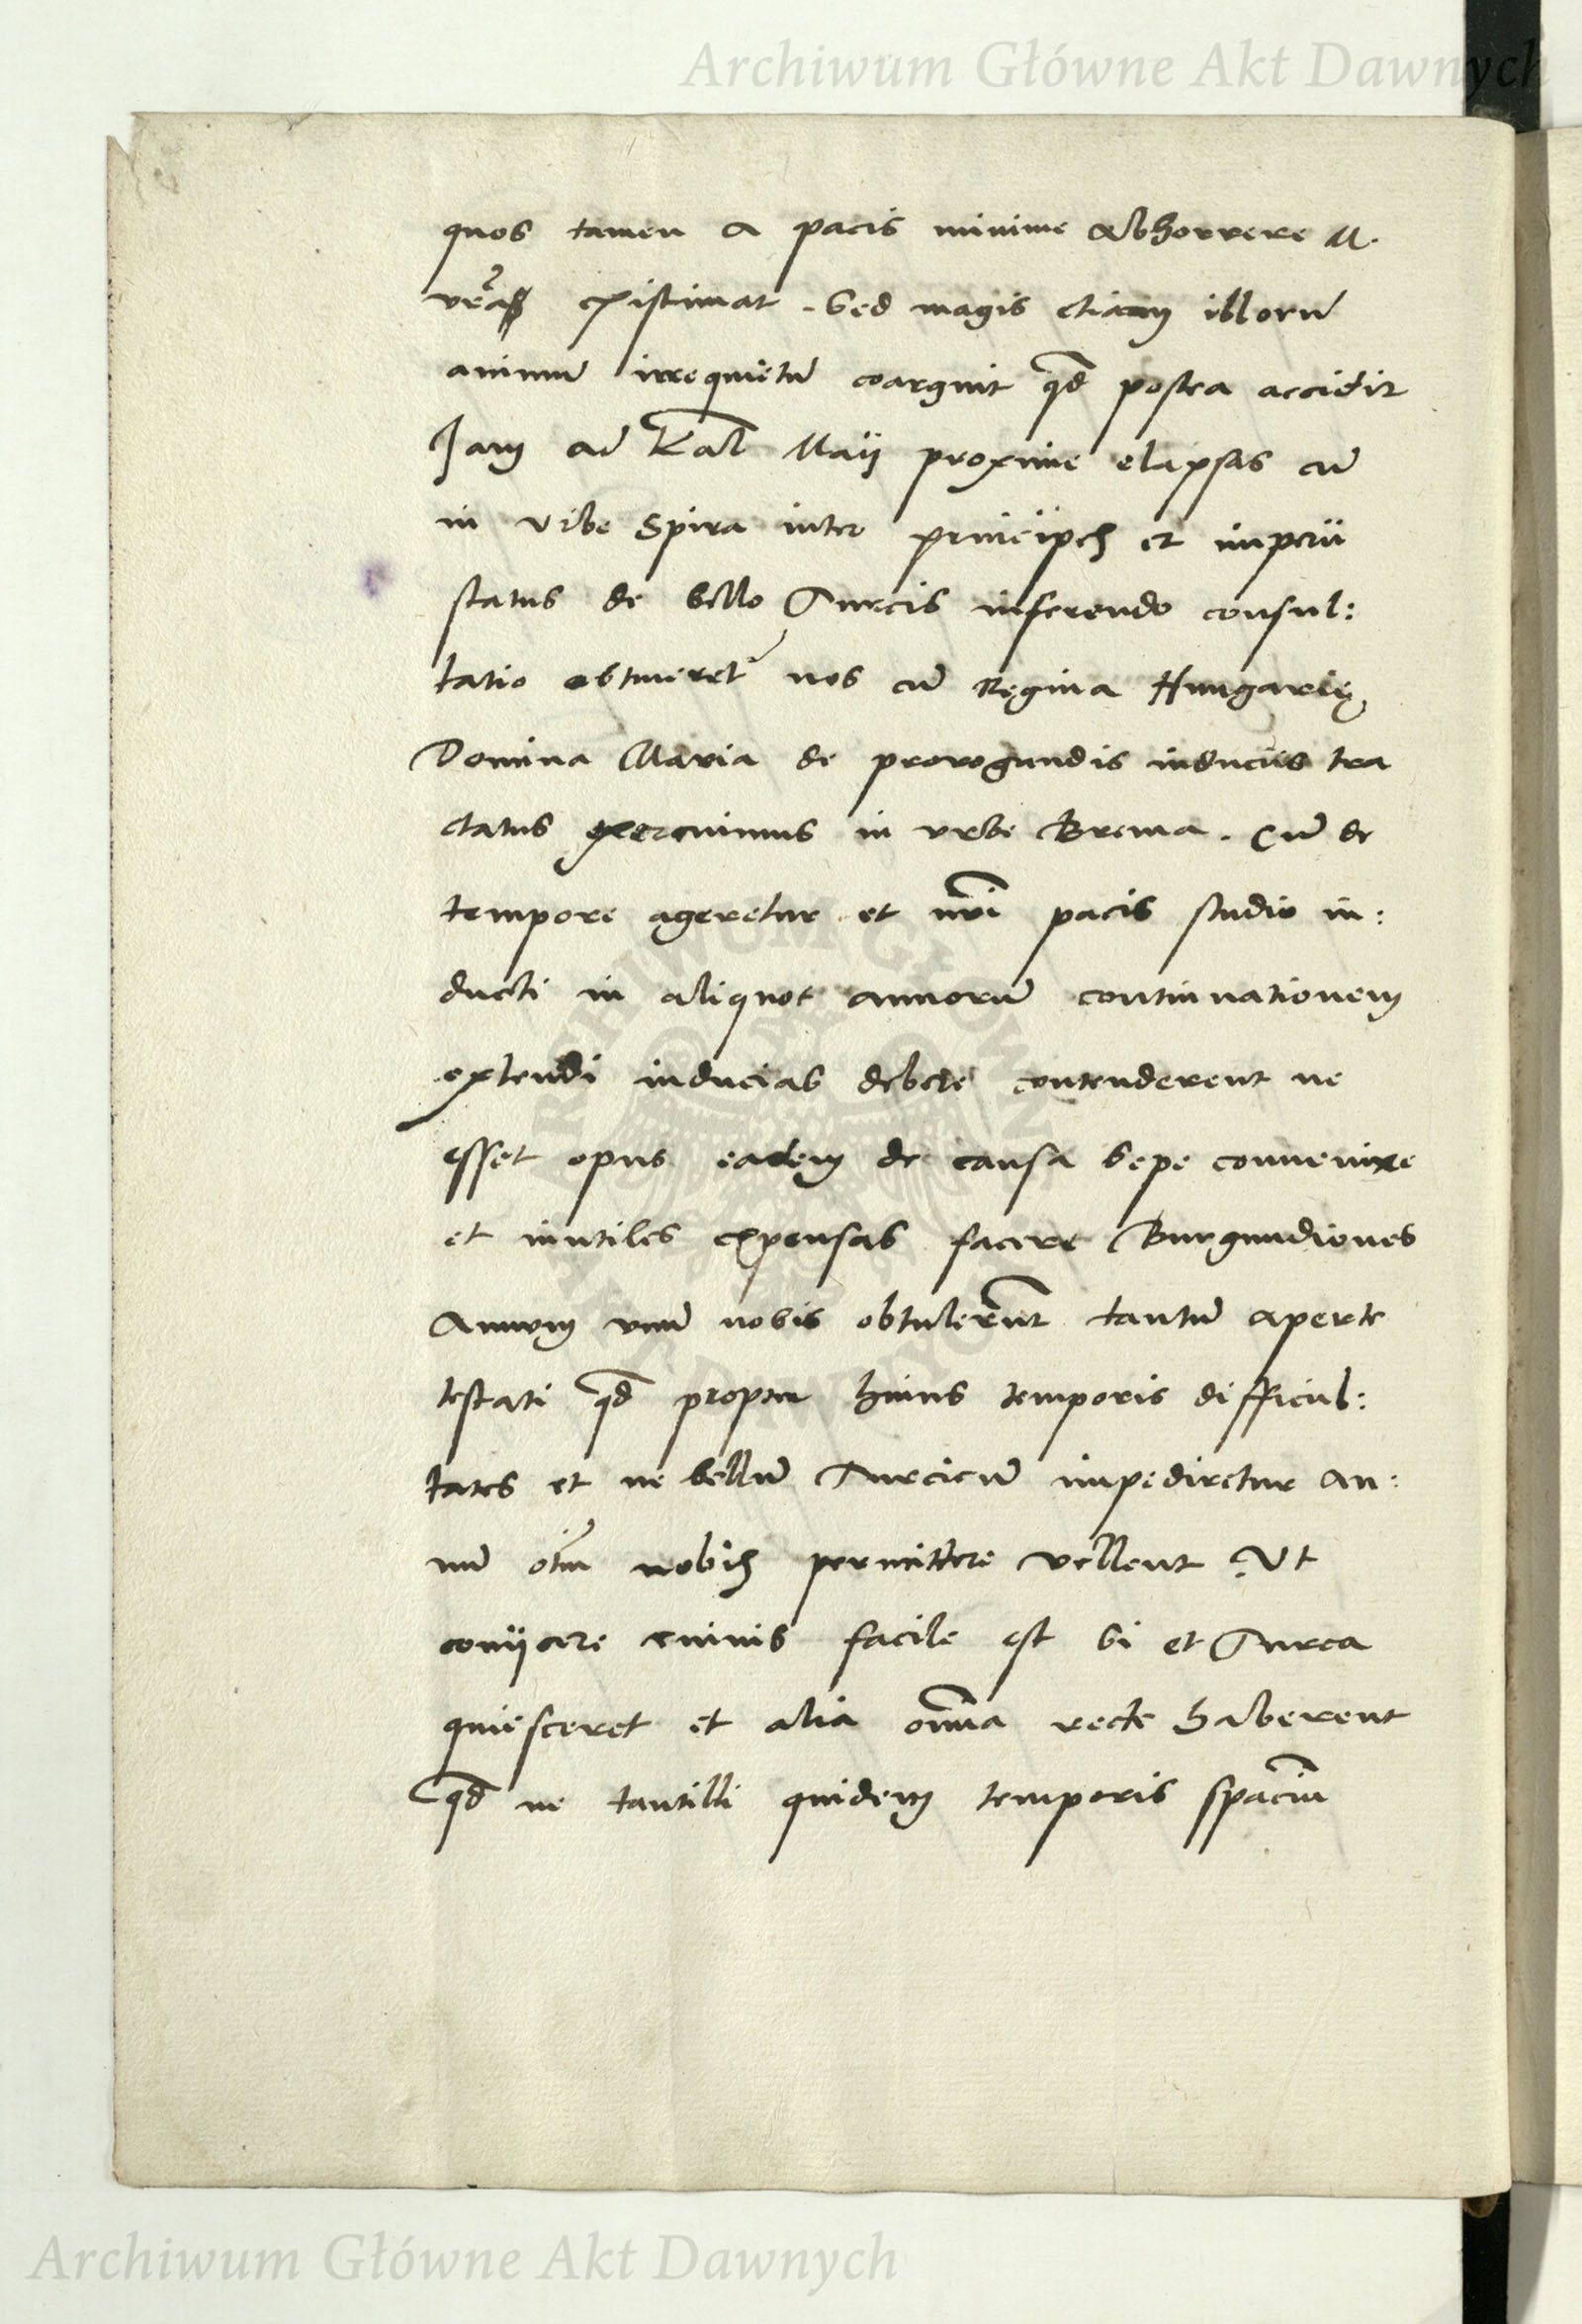 Archiwum Główne Akt Dawnych
quos tamen a pacis minime abhorrere M.
vrã existimat. Sed magis etiam illorũ
animũ irrequietũ coarguit qđ postea accidit
Jam ad Kal Maii proxime elapsas cũ
in vrbe Spira inter principes et imperii
status de bello Turcis inferendo consul:
tatio obtineret nos cũ Regina Hungarię
Domina Maria de prorogandis induciis tra
ctatus exercuimus in vrbe Brema. Cũ de
tempore ageretur et nr̃i pacis studio in:
ducti in aliquot annorũ continuationem
extendi inducias debere contenderent ne
esset opus eadem de causa sepe conuenire
et inutiles expensas facere Burgundiones
Annum vnũ nobis obtulerũt tantũ aperte
testati qđ propter huius temporis difficul:
tates et ne bellũ Turcicũ impediretur an:
nũ otiũ nobis permittere vellent. Vt
coniicere cuiuis facile est si et Turca
quiesceret et alia om̃ia recte haberent
qđ ne tantilli quidem temporis spaciũ
ARCHIWUM GŁÓWNE AKT DAWNYCH
Archiwum Główne Akt Dawnych